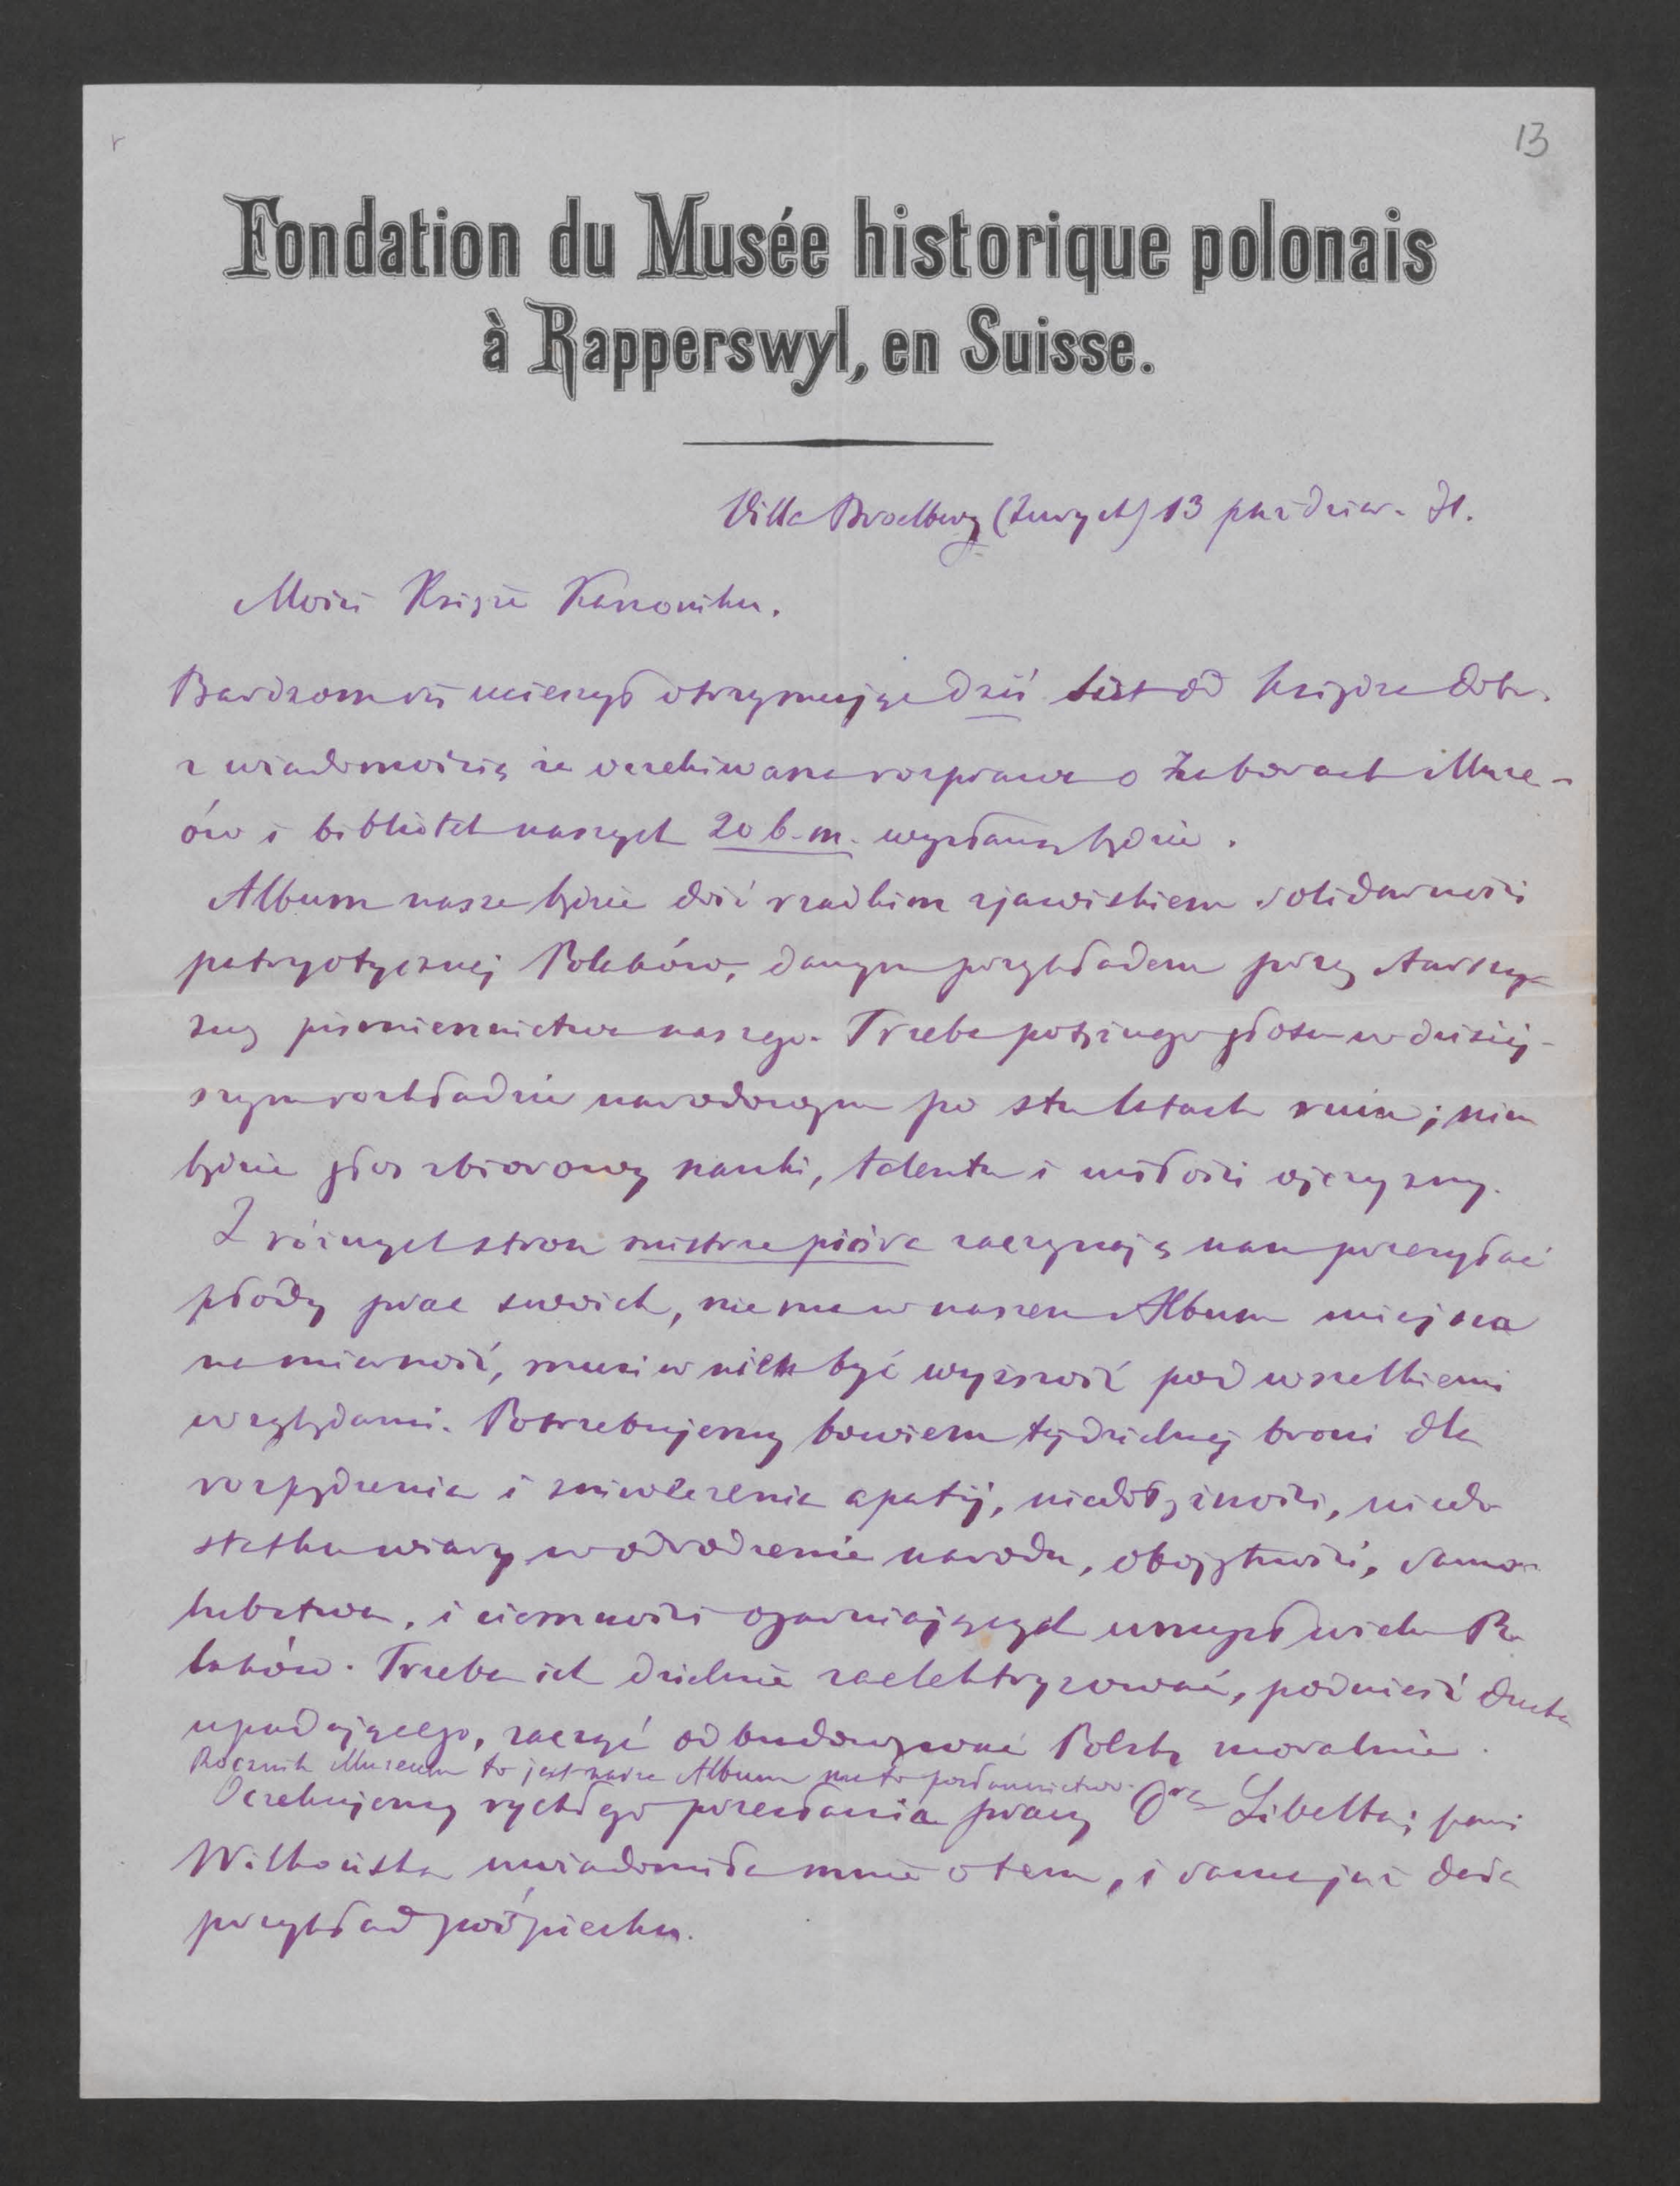 13
Fondation du Musée historique polonais
à Rapperswyl, en Suisse.
Villa Broelberg (Zurych) 13 paździer. 71.
Mości Księże Kanoniku.
Bardzom się ucieszył otrzymując dziś list od Księdza Dobr.
z wiadomością że oczekiwana rozprawa o zaborach Muze-
ów i bibliotek naszych 20 b.m. wysłaną będzie.
Album nasze będzie dziś rzadkim zjawiskiem solidarności
patryotycznej Polaków, danym przykładem przez starszy-
znę piśmiennictwa naszego. Trzeba potężnego głosu w dzisiej-
szym rozkładzie narodowym po stu latach ruin; nim
będzie głos zbiorowy nauki, talentu i miłości ojczyzny.
Z różnych stron mistrze pióra zaczynają nam przesyłać
płody prac swoich, nie ma w naszem Album miejsca
na mierność, musi w nich być wyższość pod wszelkiemi
względami. Potrzebujemy bowiem tej dzielnej broni dla
rozpędzenia i zniweczenia apatij, niedołężności, niedo
statku wiary w odrodzenie narodu, obojętności, samo-
lubstwa, i ciemności ogarniających umysł wielu Po
laków. Trzeba ich dzielnie zaelektryzować, podnieść ducha
upadającego, zacząć odbudowywać Polskę moralnie.
Rocznik Muzeum to jest nasze Album ma to posłannictwo.
Oczekujemy rychłego przesłania pracy Dra Libelta; pani
Wilkońska uwiadomiła mnie o tem, i sama już dała
przykład pośpiechu.